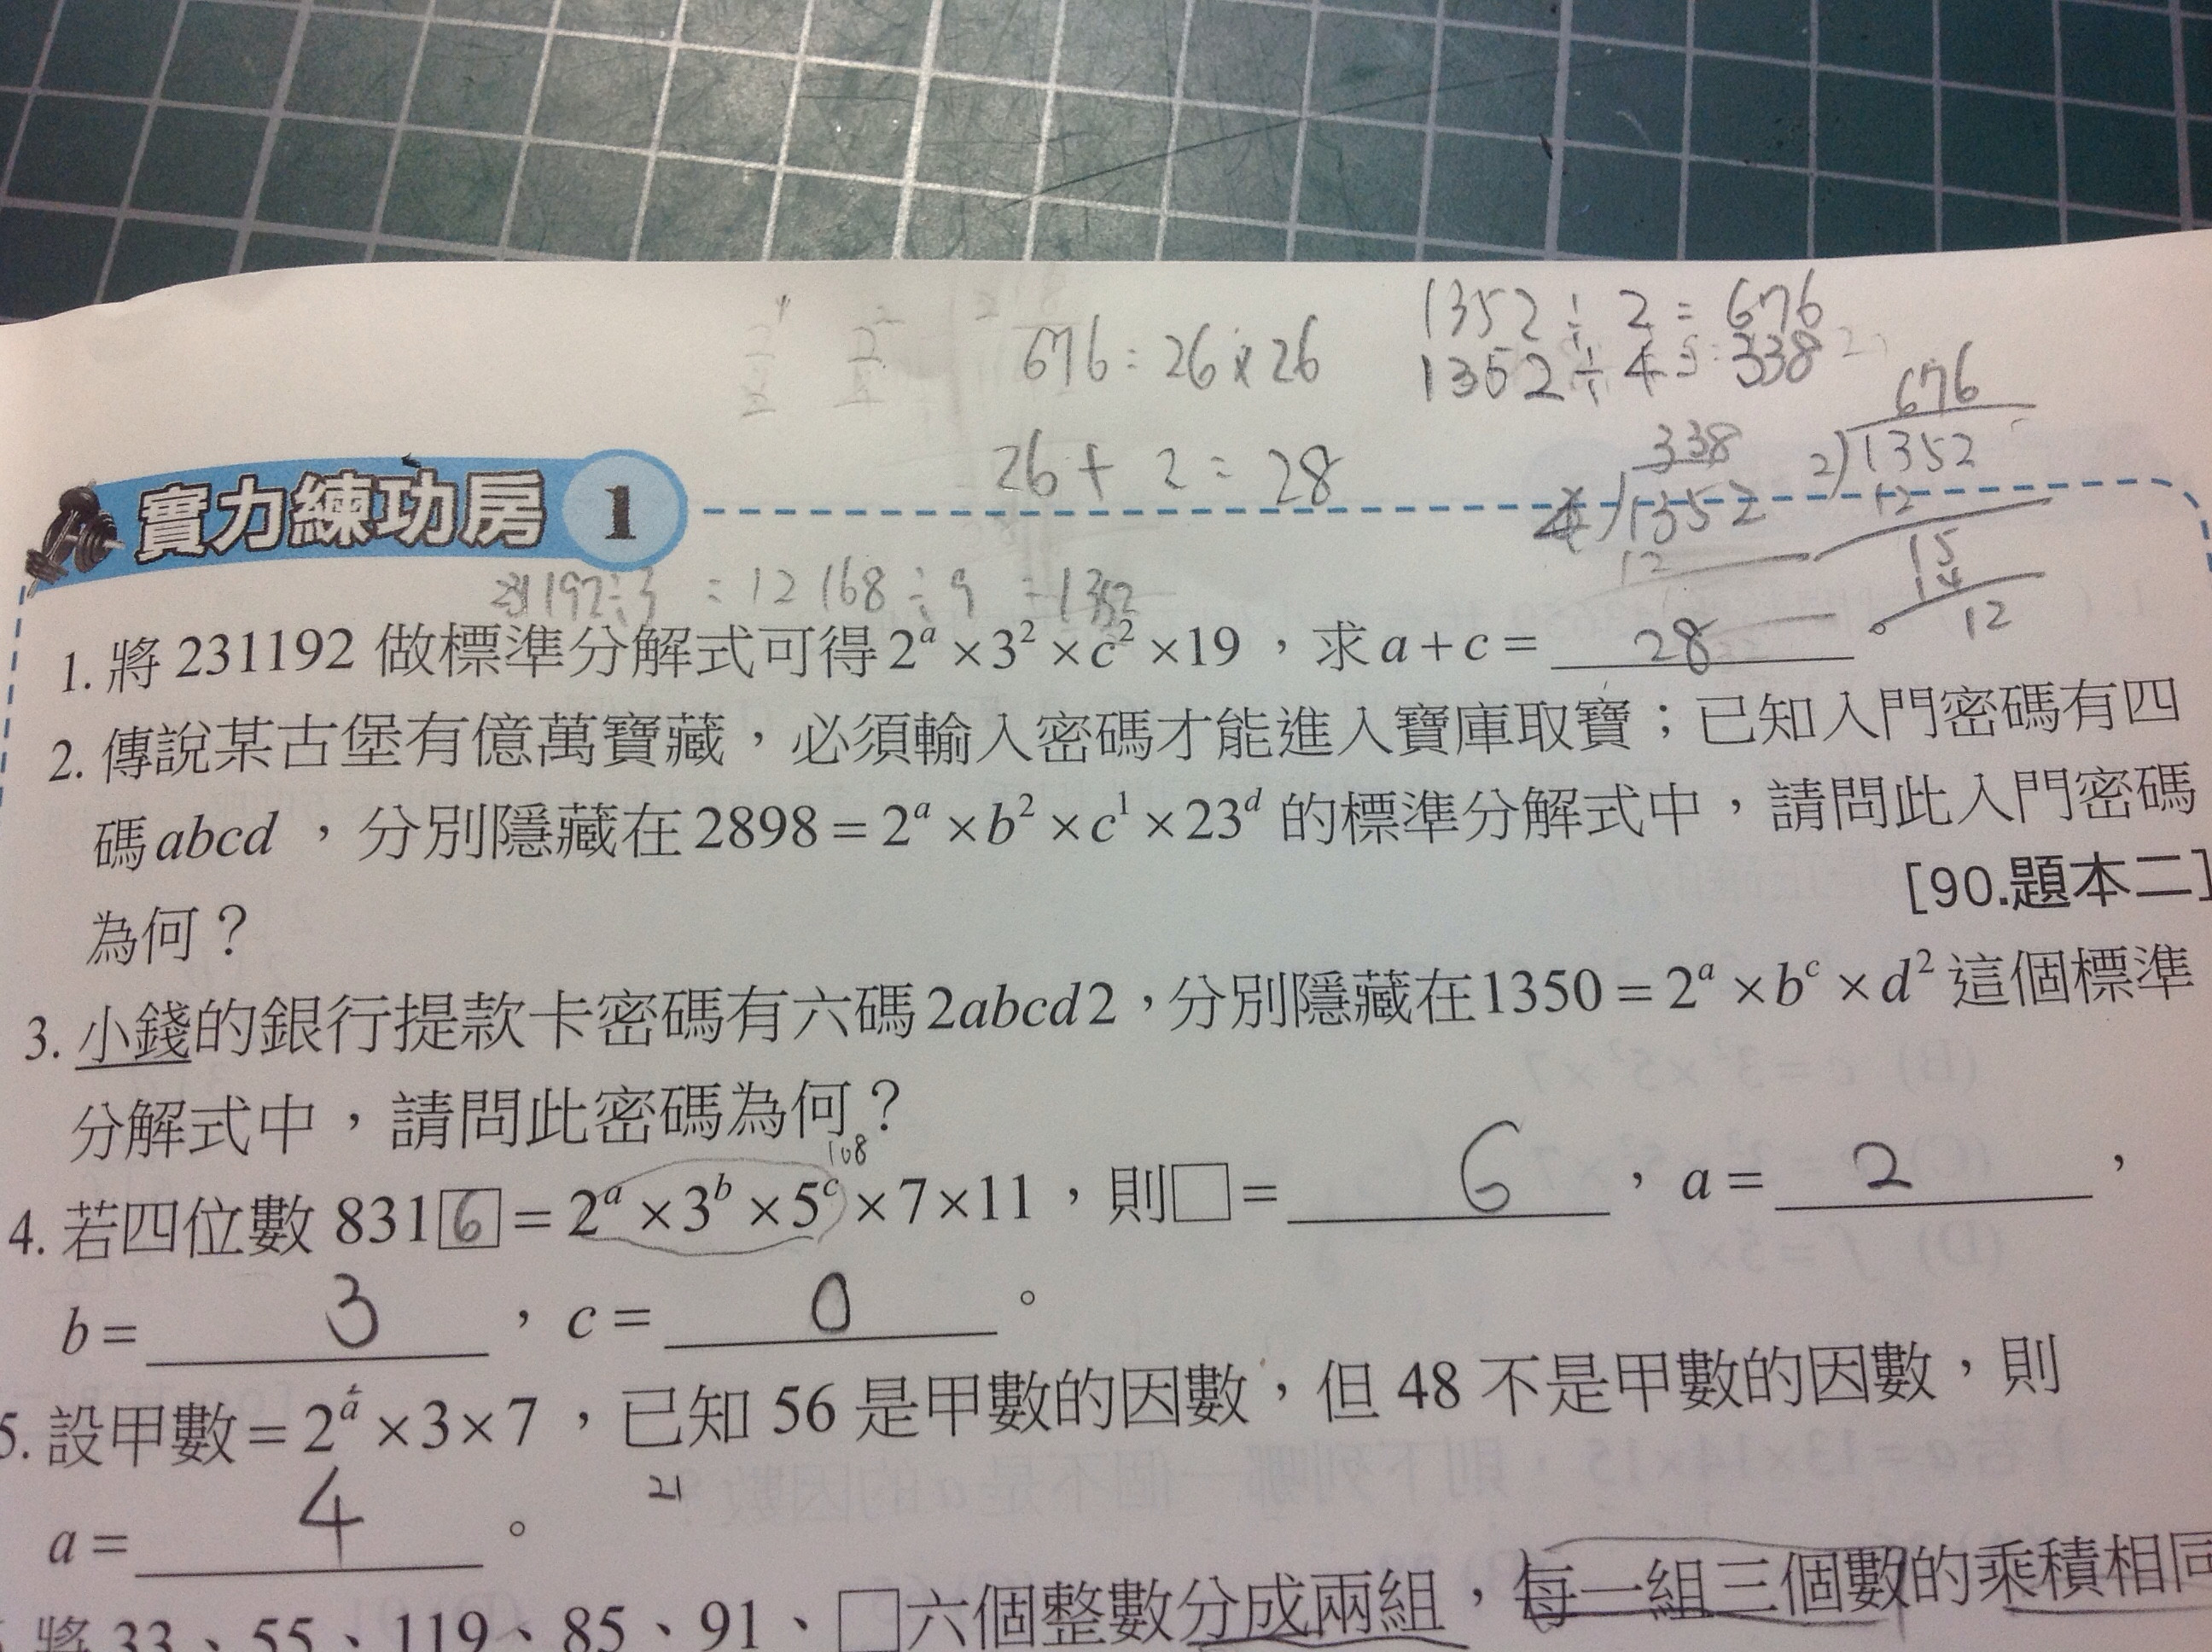 1352 ÷ 2 = 676
676 = 26 × 26
1352 ÷ 4 = 338
676
26 + 2 = 28
338
2)1352
4)1352
12
12
15
14
12
實力練功房 1
231192÷ = 12168 ÷ 9 = 1352
1. 將 231192 做標準分解式可得 2^a × 3^2 × c^2 × 19，求 a + c = 28。
2. 傳說某古堡有億萬寶藏，必須輸入密碼才能進入寶庫取寶；已知入門密碼有四
碼 abcd ，分別隱藏在 2898 = 2^a × b^2 × c^1 × 23^d 的標準分解式中，請問此入門密碼
為何？
[90.題本二]
3. 小錢的銀行提款卡密碼有六碼 2abcd2，分別隱藏在1350 = 2^a × b^c × d^2 這個標準
分解式中，請問此密碼為何？
108
4. 若四位數 831[6] = 2^a × 3^b × 5^c × 7 × 11，則□= 6，a = 2，
b = 3，c = 0。
5. 設甲數 = 2^a × 3 × 7，已知 56 是甲數的因數，但 48 不是甲數的因數，則
21
a = 4。
將 33、55、119、85、91、□六個整數分成兩組，每一組三個數的乘積相同